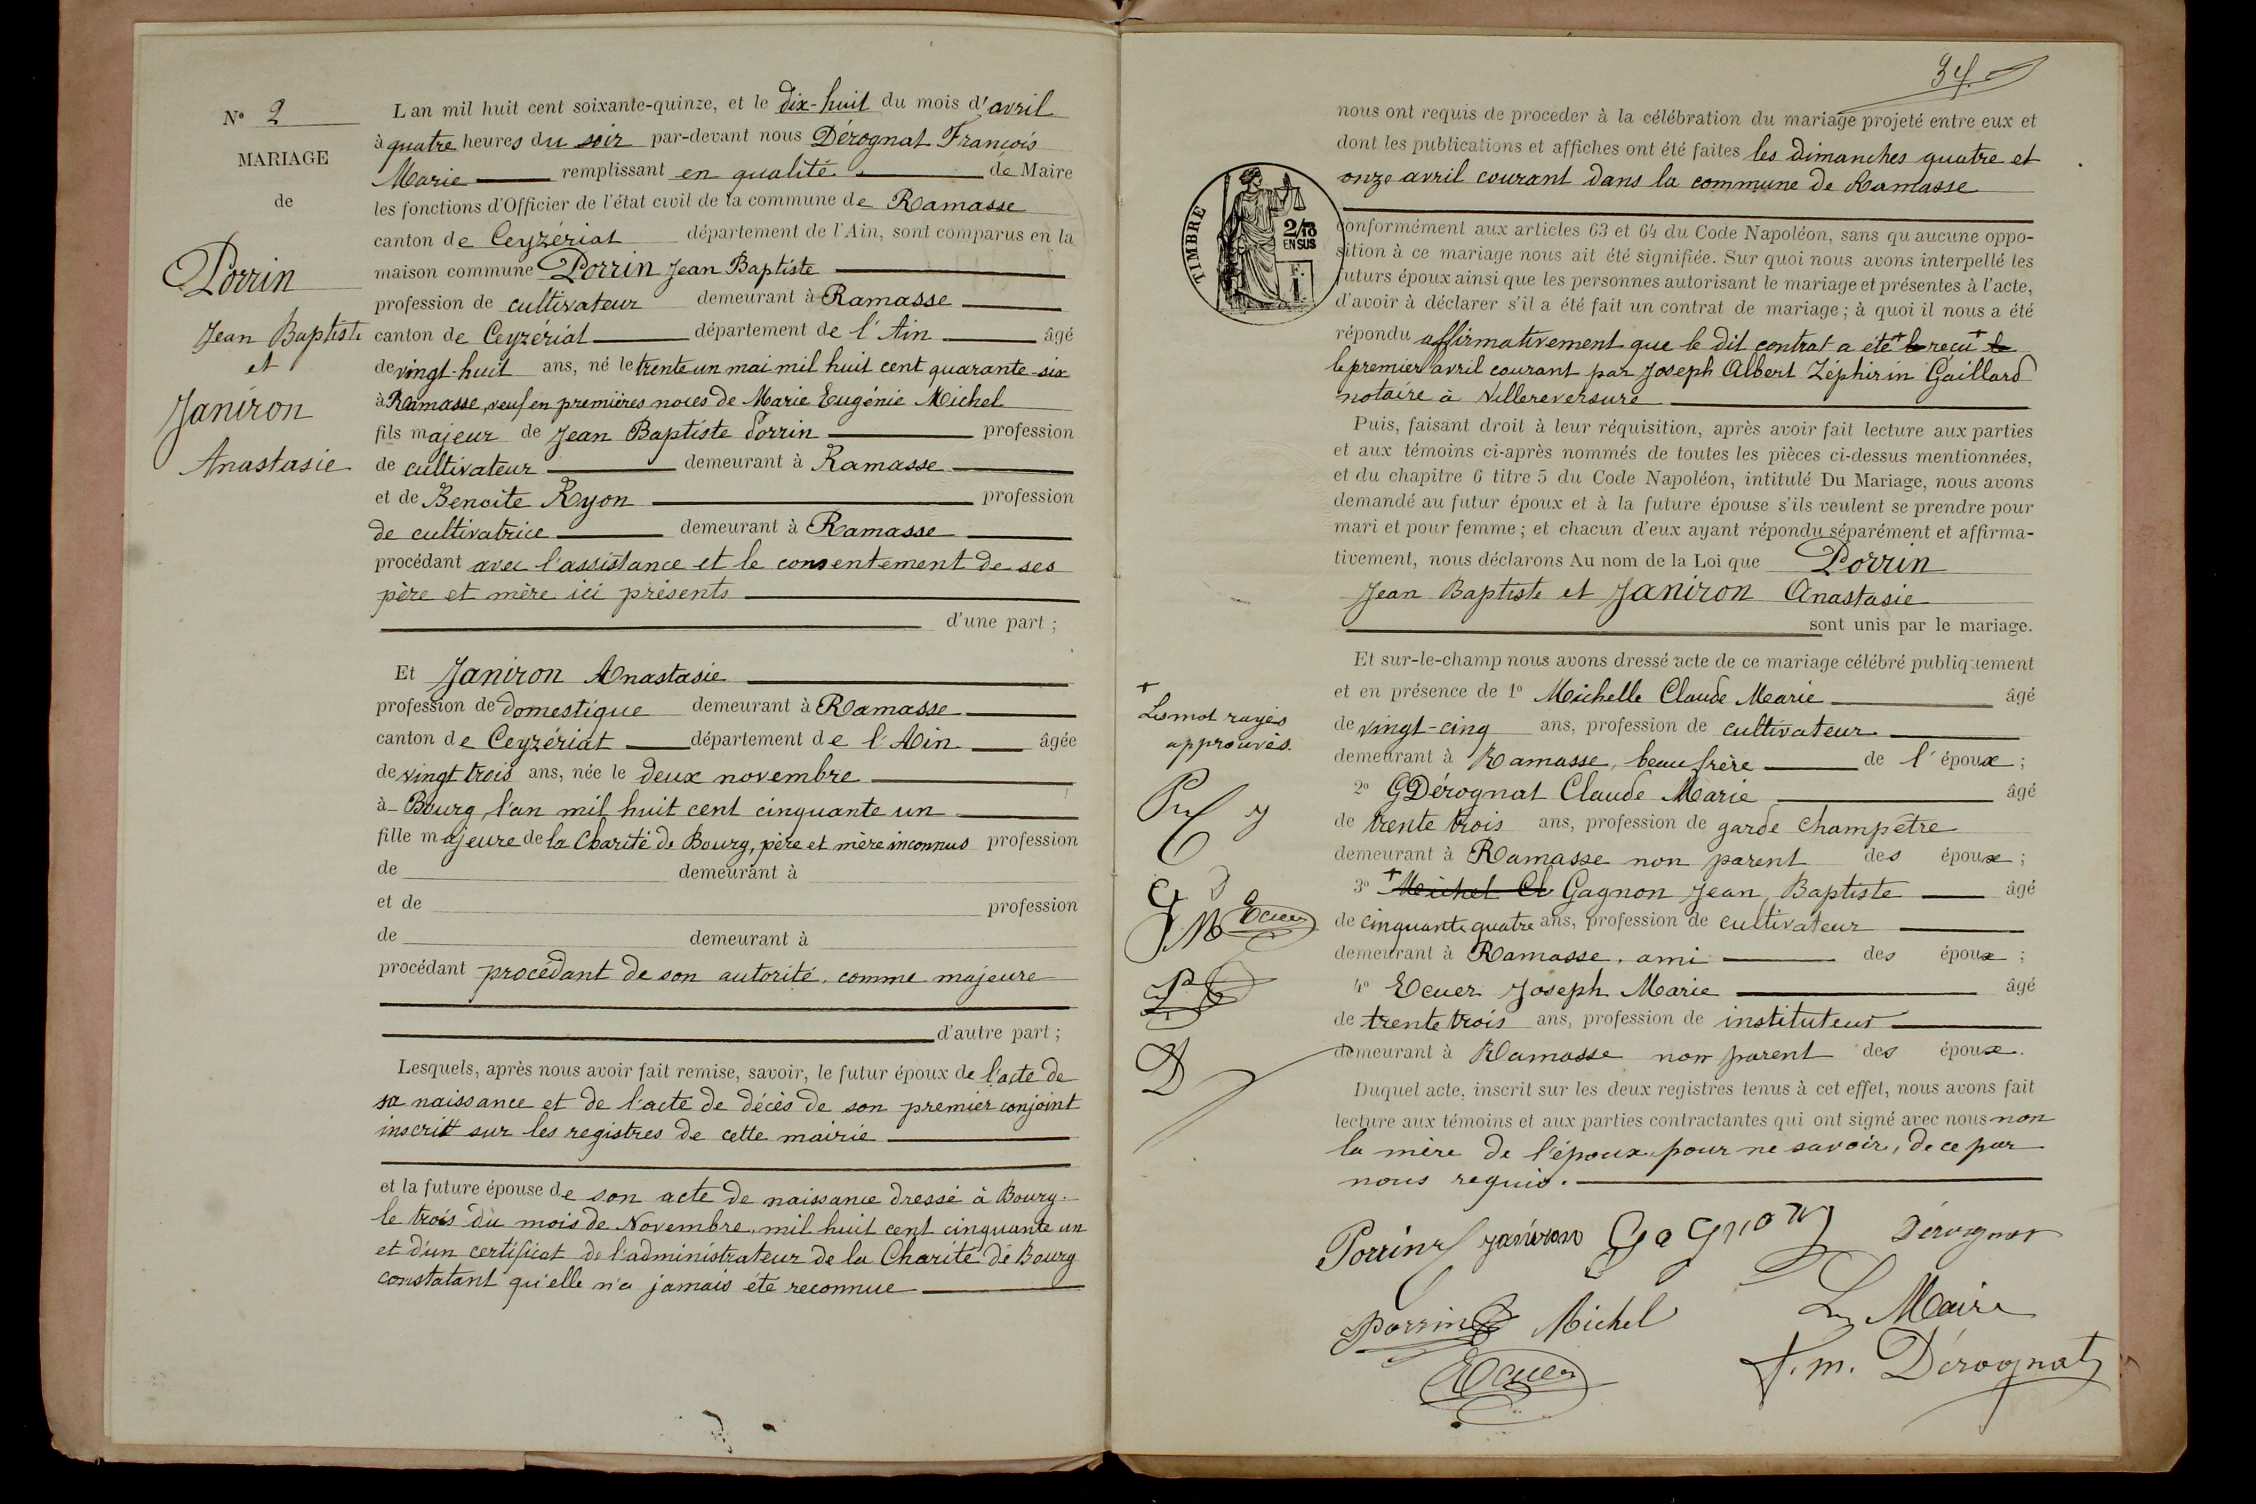 N° 2
MARIAGE
de
Porrin
Jean Baptiste
et
Janiron
Anastasie
L'an mil huit cent soixante-quinze, et le dix-huit du mois d'avril
à quatre heures du soir par-devant nous Dérognat François
Marie remplissant en qualité de Maire
les fonctions d'Officier de l'état civil de la commune de Ramasse
canton de Ceyzériat département de l'Ain, sont comparus en la
maison commune Porrin Jean Baptiste
profession de cultivateur demeurant à Ramasse
canton de Ceyzériat département de l'Ain âgé
de vingt-huit ans, né le trente un mai mil huit cent quarante-six
à Ramasse, veuf en premières noces de Marie Eugénie Michel
fils majeur de Jean Baptiste Porrin profession
de cultivateur demeurant à Ramasse
et de Benoite Ryon profession
de cultivatrice demeurant à Ramasse
procédant avec l'assistance et le consentement de ses
père et mère ici présents
d'une part ;
Et Janiron Anastasie
profession de domestique demeurant à Ramasse
canton de Ceyzériat département de l'Ain âgée
de vingt trois ans, née le deux novembre
à Bourg, l'an mil huit cent cinquante un
fille majeure de la Charité de Bourg, père et mère inconnus profession
de demeurant à
et de profession
de demeurant à
procédant procédant de son autorité, comme majeure
d'autre part ;
Lesquels, après nous avoir fait remise, savoir, le futur époux de l'acte de
sa naissance et de l'acte de décès de son premier conjoint
inscrit sur les registres de cette mairie
et la future épouse de son acte de naissance dressé à Bourg
le trois du mois de Novembre, mil huit cent cinquante un
et d'un certificat de l'administrateur de la Charité de Bourg
constatant qu'elle n'a jamais été reconnue
34
nous ont requis de procéder à la célébration du mariage projeté entre eux et
dont les publications et affiches ont été faites les dimanches quatre et
onze avril courant dans la commune de Ramasse
TIMBRE
2/10
EN SUS
F.
1
conformément aux articles 63 et 64 du Code Napoléon, sans qu'aucune oppo-
sition à ce mariage nous ait été signifiée. Sur quoi nous avons interpellé les
futurs époux ainsi que les personnes autorisant le mariage et présentes à l'acte,
d'avoir à déclarer s'il a été fait un contrat de mariage ; à quoi il nous a été
répondu affirmativement que le dit contrat a été + le reçu + le
le premier avril courant par Joseph Albert Zéphirin Gaillard
notaire à Villereversure
Puis, faisant droit à leur réquisition, après avoir fait lecture aux parties
et aux témoins ci-après nommés de toutes les pièces ci-dessus mentionnées,
et du chapitre 6 titre 5 du Code Napoléon, intitulé Du Mariage, nous avons
demandé au futur époux et à la future épouse s'ils veulent se prendre pour
mari et pour femme ; et chacun d'eux ayant répondu séparément et affirma-
tivement, nous déclarons Au nom de la Loi que Porrin
Jean Baptiste et Janiron Anastasie
sont unis par le mariage.
Et sur-le-champ nous avons dressé acte de ce mariage célébré publiquement
et en présence de 1° Michelle Claude Marie âgé
de vingt-cinq ans, profession de cultivateur
demeurant à Ramasse, beau frère de l'époux ;
2° Dérognat Claude Marie âgé
de trente trois ans, profession de garde champêtre
demeurant à Ramasse non parent des époux ;
3° + Michel Cl Gagnon Jean Baptiste âgé
de cinquante quatre ans, profession de cultivateur
demeurant à Ramasse, ami des époux ;
4° Ecuer Joseph Marie âgé
de trente trois ans, profession de instituteur
demeurant à Ramasse non parent des époux.
Duquel acte, inscrit sur les deux registres tenus à cet effet, nous avons fait
lecture aux témoins et aux parties contractantes qui ont signé avec nous non
la mère de l'époux, pour ne savoir, de ce par
nous requis.
+
Les mot rayés
approuvés.
Ecuer
Porrin Janiron Gagnon Dérognat
Porrin Michel Le Maire
Ecuer f. m. Dérognat